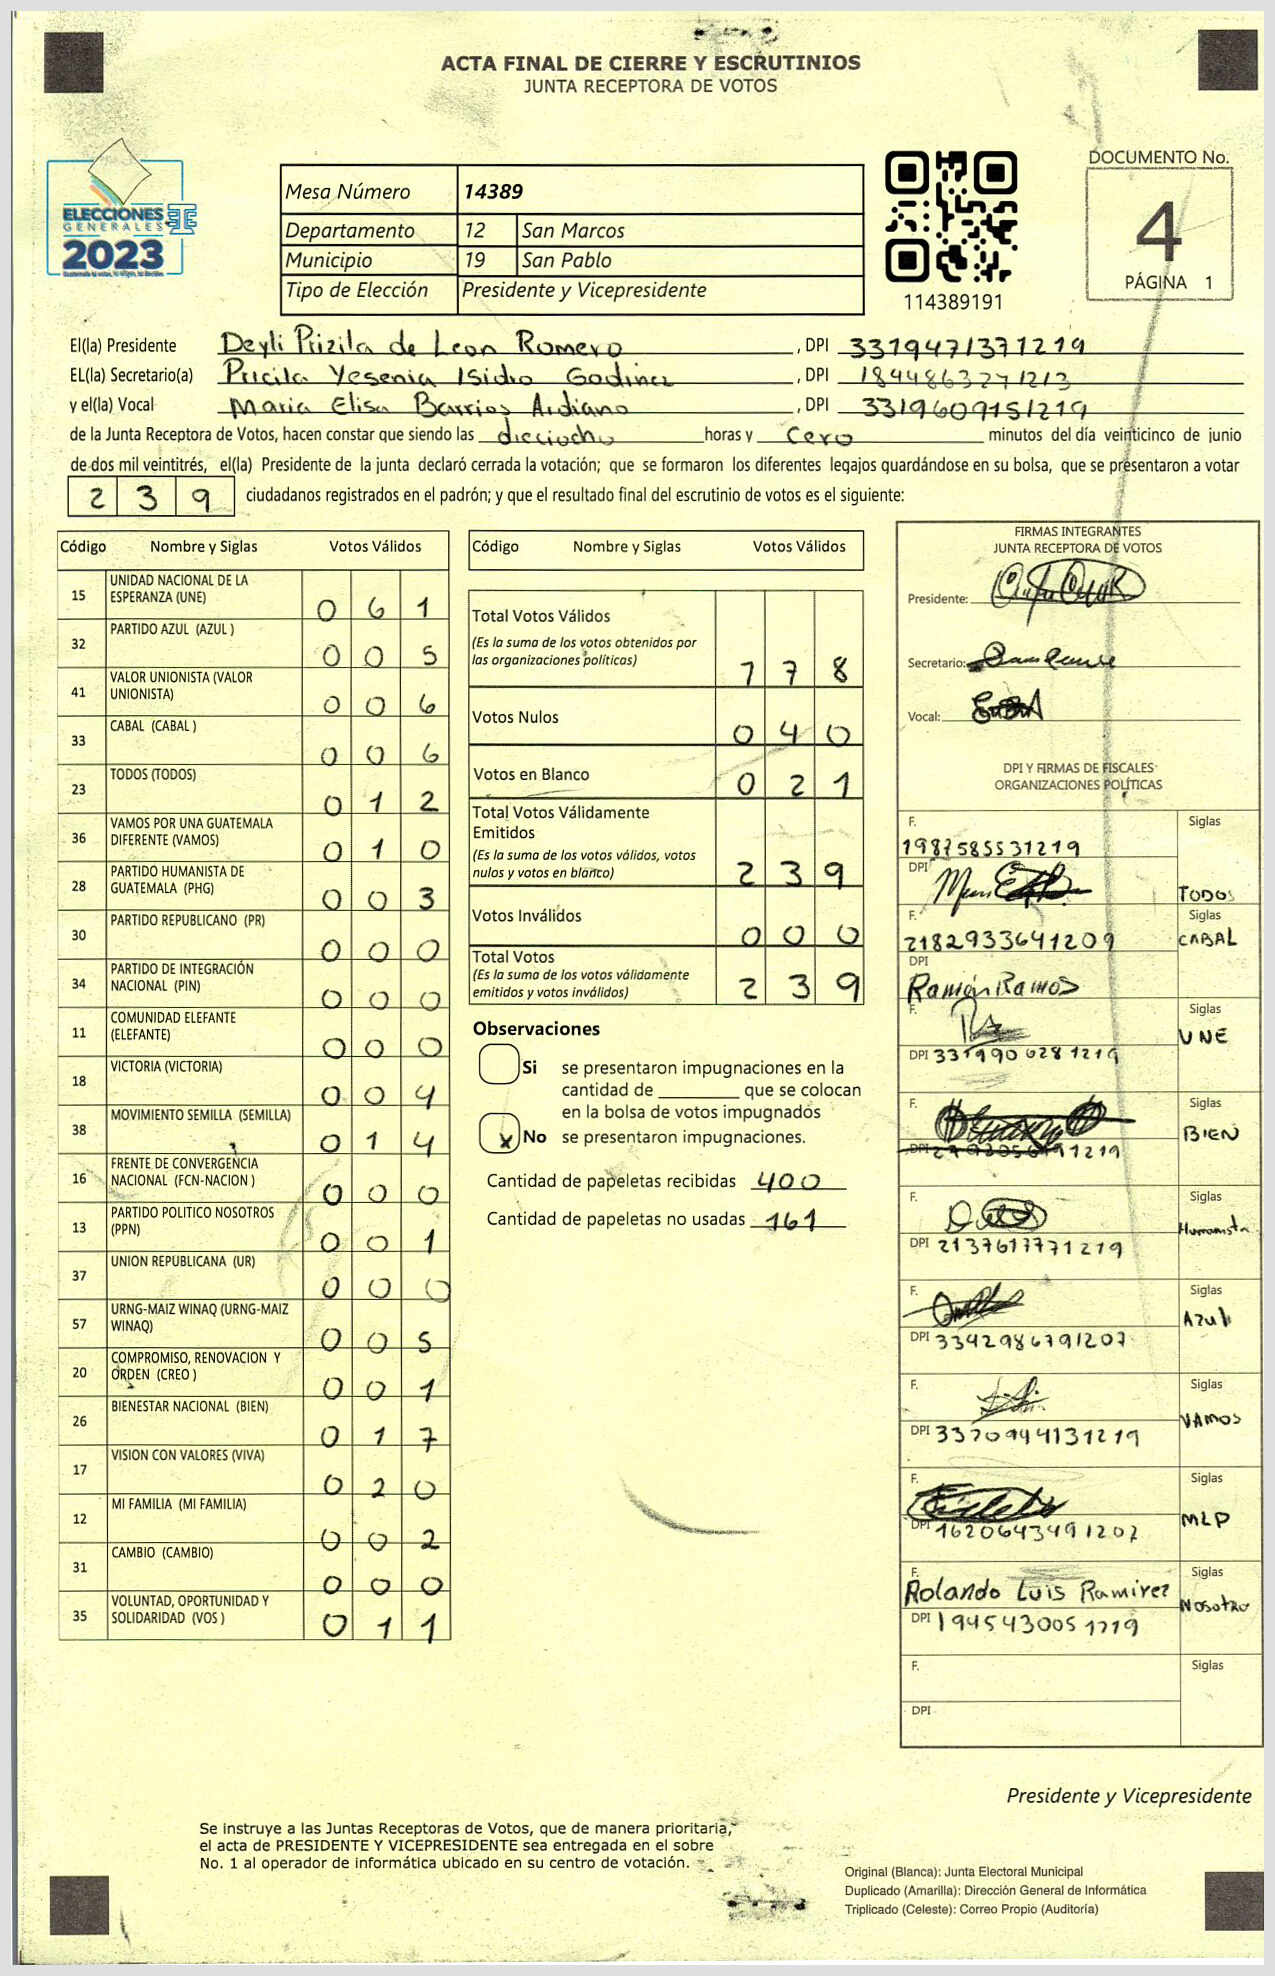 ACTA FINAL DE CIERRE Y ESCRUTINIOS
JUNTA RECEPTORA DE VOTOS
ELECCIONES
GENERALES
2023
Mesa Número 14389
Departamento 12 San Marcos
Municipio 19 San Pablo
Tipo de Elección Presidente y Vicepresidente
114389191
DOCUMENTO No.
4
PÁGINA 1
El(la) Presidente Deyli Prizila de Leon Romero , DPI 3319471371219
EL(la) Secretario(a) Pricila Yesenia Isidro Godinez , DPI 1844863271213
y el(la) Vocal Maria Elisa Barrios Ardiano , DPI 3319609151219
de la Junta Receptora de Votos, hacen constar que siendo las dieciocho horas y cero minutos del día veinticinco de junio
de dos mil veintitrés, el(la) Presidente de la junta declaró cerrada la votación; que se formaron los diferentes legajos guardándose en su bolsa, que se presentaron a votar
239 ciudadanos registrados en el padrón; y que el resultado final del escrutinio de votos es el siguiente:
Código Nombre y Siglas Votos Válidos
15 UNIDAD NACIONAL DE LA ESPERANZA (UNE) 061
32 PARTIDO AZUL (AZUL ) 005
41 VALOR UNIONISTA (VALOR UNIONISTA) 006
33 CABAL (CABAL ) 006
23 TODOS (TODOS) 012
36 VAMOS POR UNA GUATEMALA DIFERENTE (VAMOS) 010
28 PARTIDO HUMANISTA DE GUATEMALA (PHG) 003
30 PARTIDO REPUBLICANO (PR) 000
34 PARTIDO DE INTEGRACIÓN NACIONAL (PIN) 000
11 COMUNIDAD ELEFANTE (ELEFANTE) 000
18 VICTORIA (VICTORIA) 004
38 MOVIMIENTO SEMILLA (SEMILLA) 014
16 FRENTE DE CONVERGENCIA NACIONAL (FCN-NACION ) 000
13 PARTIDO POLITICO NOSOTROS (PPN) 001
37 UNION REPUBLICANA (UR) 000
57 URNG-MAIZ WINAQ (URNG-MAIZ WINAQ) 005
20 COMPROMISO, RENOVACION Y ORDEN (CREO ) 001
26 BIENESTAR NACIONAL (BIEN) 017
17 VISION CON VALORES (VIVA) 020
12 MI FAMILIA (MI FAMILIA) 002
31 CAMBIO (CAMBIO) 000
35 VOLUNTAD, OPORTUNIDAD Y SOLIDARIDAD (VOS ) 011
Código Nombre y Siglas Votos Válidos
Total Votos Válidos
(Es la suma de los votos obtenidos por
las organizaciones políticas) 178
Votos Nulos 040
Votos en Blanco 021
Total Votos Válidamente
Emitidos
(Es la suma de los votos válidos, votos
nulos y votos en blanco) 239
Votos Inválidos 000
Total Votos
(Es la suma de los votos válidamente
emitidos y votos inválidos) 239
Observaciones
Si se presentaron impugnaciones en la
cantidad de ________ que se colocan
en la bolsa de votos impugnados
x No se presentaron impugnaciones.
Cantidad de papeletas recibidas 400
Cantidad de papeletas no usadas 161
FIRMAS INTEGRANTES
JUNTA RECEPTORA DE VOTOS
Presidente:
Secretario:
Vocal:
DPI Y FIRMAS DE FISCALES
ORGANIZACIONES POLÍTICAS
F. 1987585531219 Siglas
DPI TODOS
F. 2182933641209 Siglas CABAL
DPI Ramón Ramos
F. Siglas UNE
DPI 3319906281219
F. Siglas BIEN
DPI
F. Siglas Humanista
DPI 2137617771219
F. Siglas Azul
DPI 3342986791207
F. Siglas VAMOS
DPI 3370944131219
F. Siglas MLP
DPI 1620643491207
F. Rolando Luis Ramirez Siglas Nosotro
DPI 1945430051219
F. Siglas
DPI
Presidente y Vicepresidente
Se instruye a las Juntas Receptoras de Votos, que de manera prioritaria,
el acta de PRESIDENTE Y VICEPRESIDENTE sea entregada en el sobre
No. 1 al operador de informática ubicado en su centro de votación.
Original (Blanca): Junta Electoral Municipal
Duplicado (Amarilla): Dirección General de Informática
Triplicado (Celeste): Correo Propio (Auditoría)